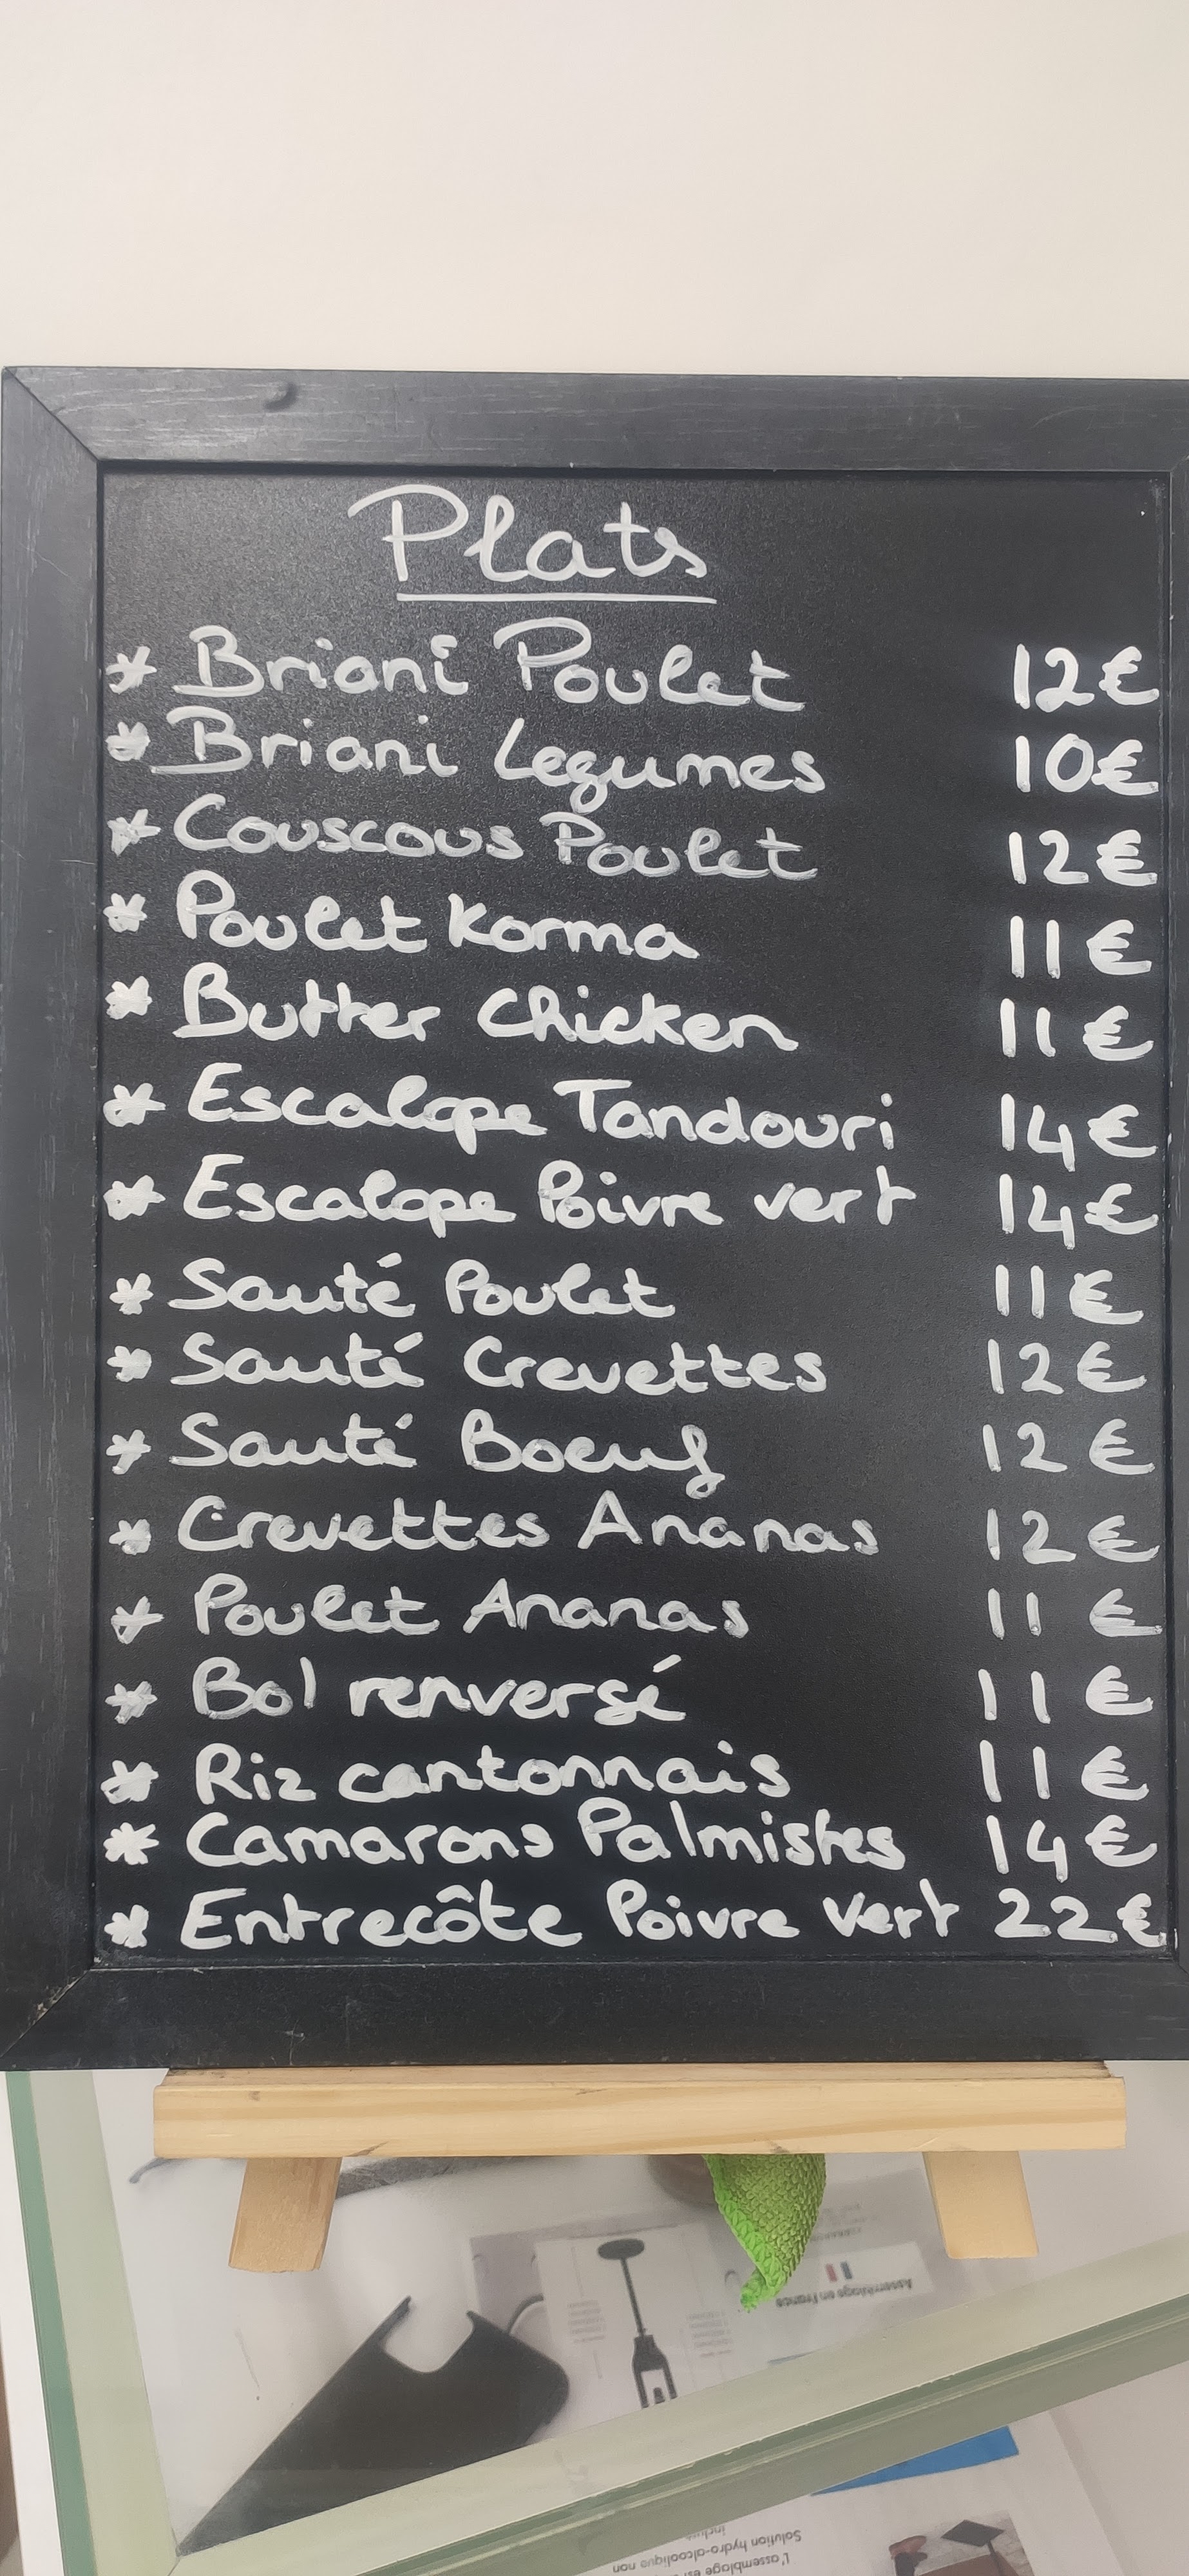 Plats
* Briani Poulet 12€
* Briani Legumes 10€
* Couscous Poulet 12€
* Poulet Korma 11€
* Butter Chicken 11€
* Escalope Tandouri 14€
* Escalope Poivre vert 14€
* Sauté Poulet 11€
* Sauté Crevettes 12€
* Sauté Boeuf 12€
* Crevettes Ananas 12€
* Poulet Ananas 11€
* Bol renversé 11€
* Riz cantonnais 11€
* Camarons Palmistes 14€
* Entrecôte Poivre Vert 22€
Assemblage en France
Solution hydro-alcoolique non
inclue
L'assemblage es